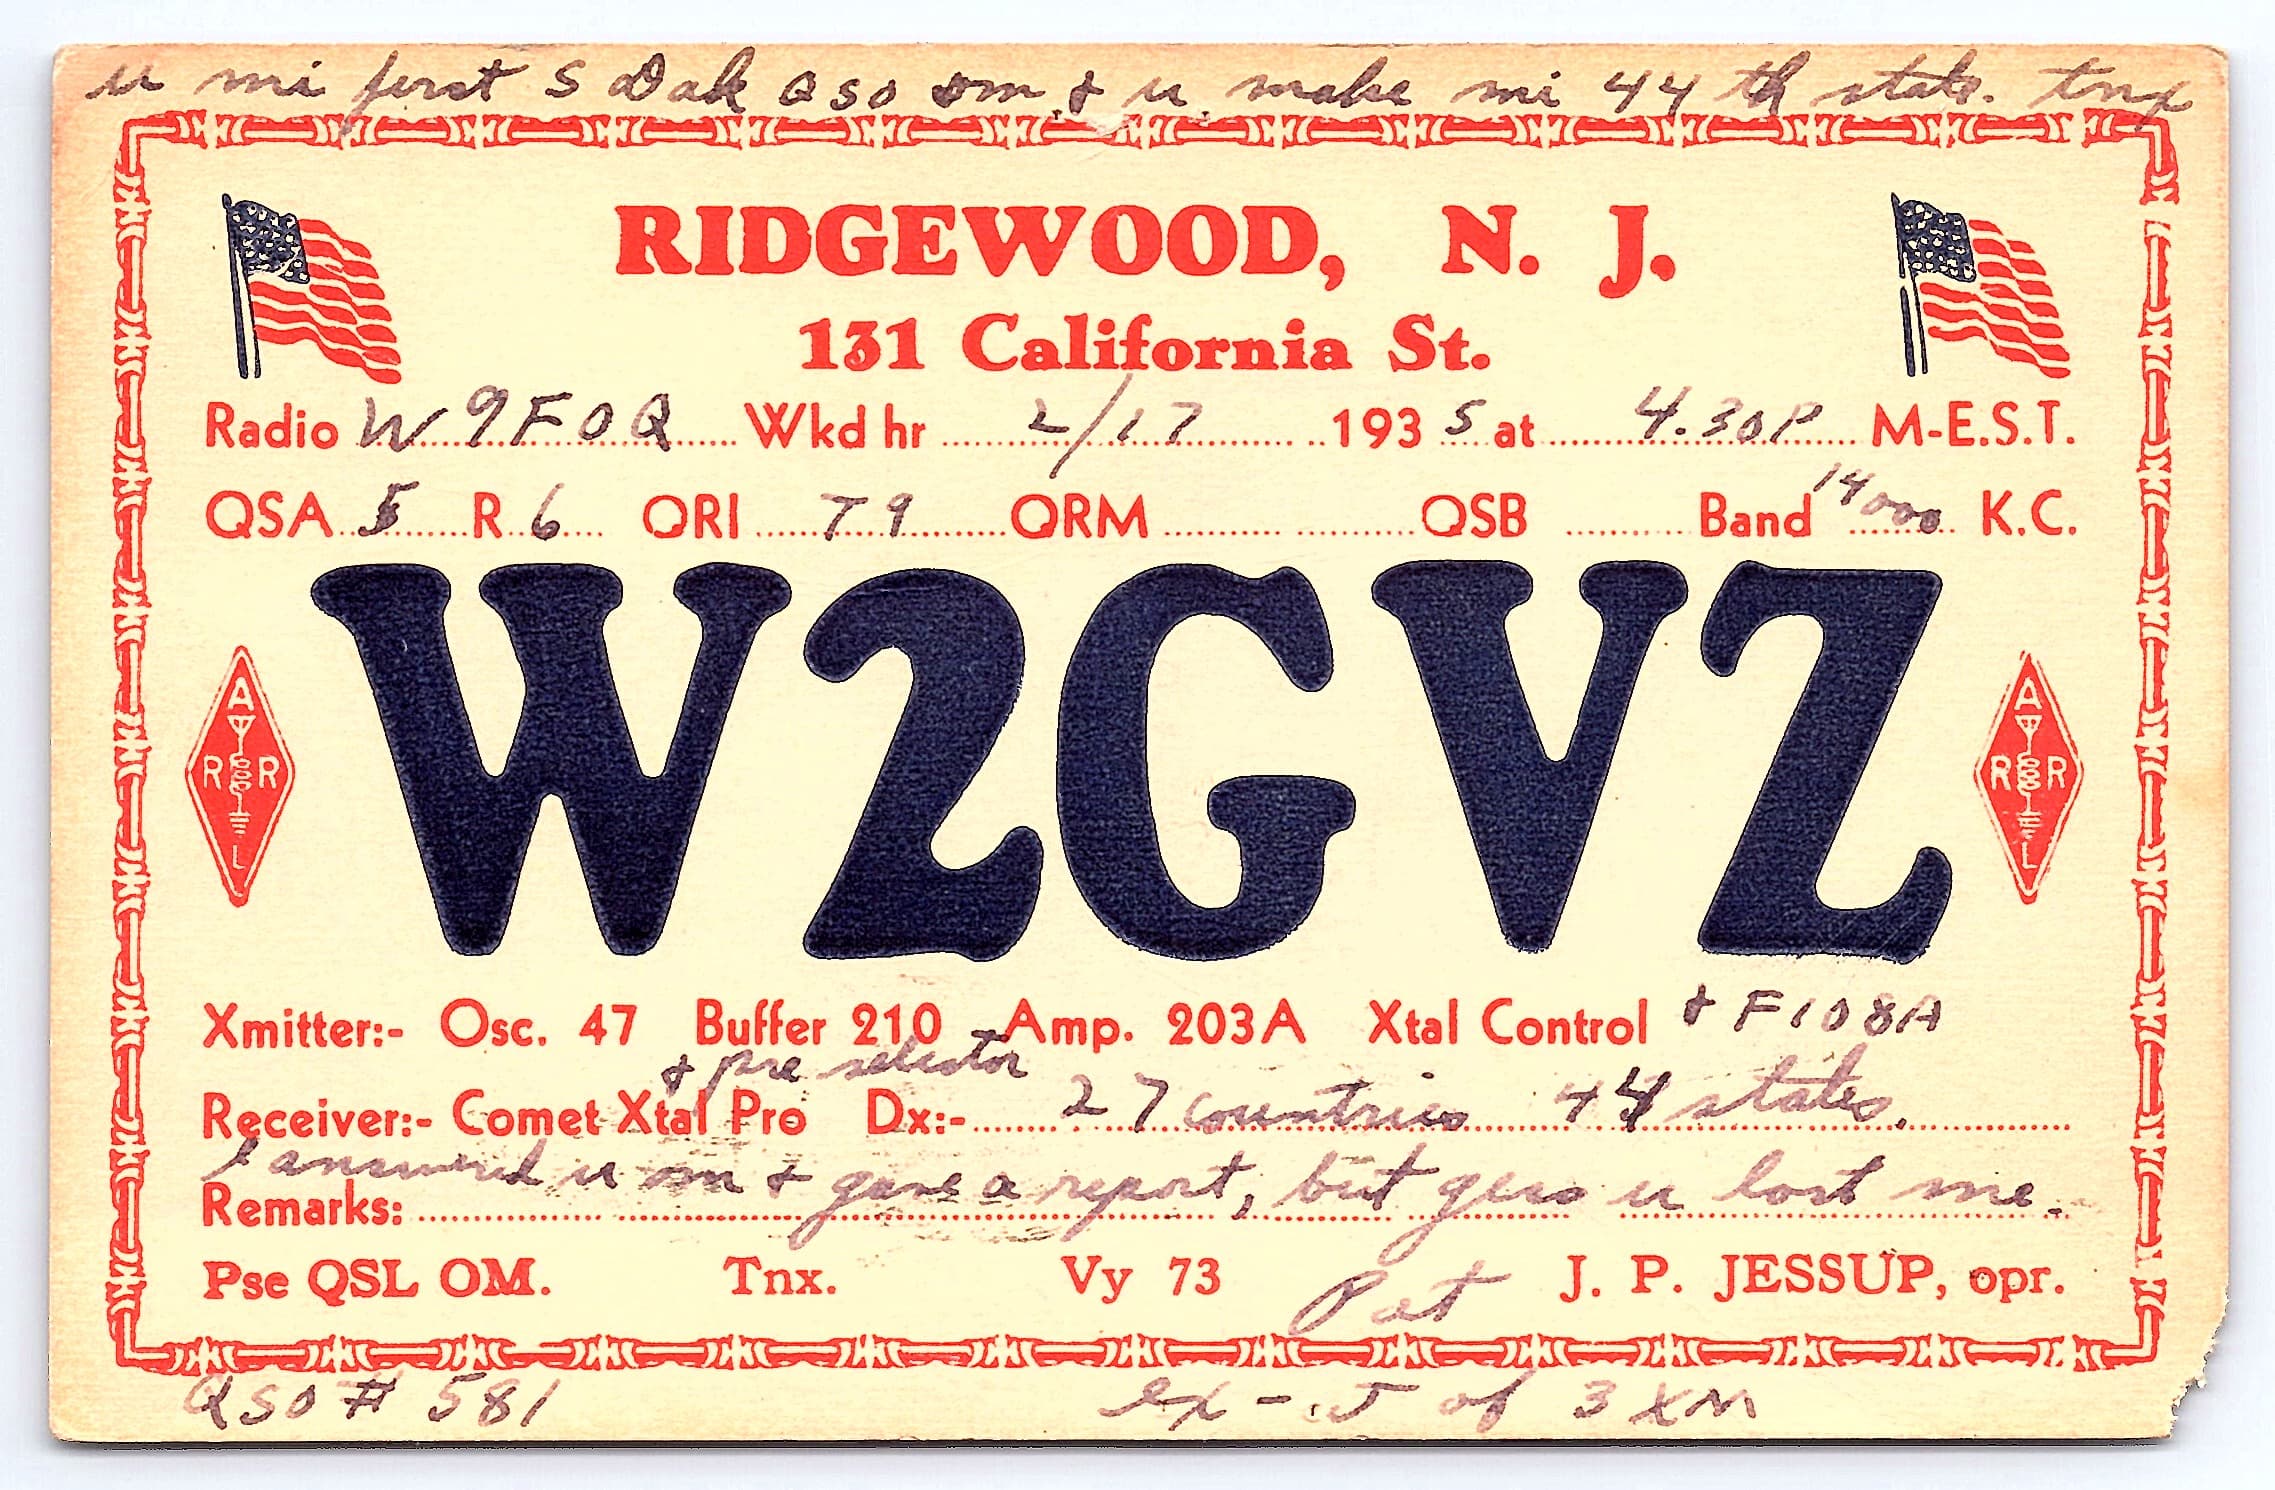 u mi first S Dak QSO om & u make mi 44 th state. tnx
RIDGEWOOD, N. J.
131 California St.
Radio W9FOQ Wkd hr 2/17 1935 at 4.30P M-E.S.T.
QSA 5 R 6 QRI T9 QRM QSB Band 14000 K.C.
W2GVZ
A R R L
A R R L
Xmitter:- Osc. 47 Buffer 210 Amp. 203A Xtal Control & F108A
& pre selector
Receiver:- Comet Xtal Pro Dx:- 27 countries 44 states.
I answered u om & gave a report, but guess u lost me.
Remarks:
Pse QSL OM. Tnx. Vy 73 Pat J. P. JESSUP, opr.
QSO # 581 ex - J of 3XM